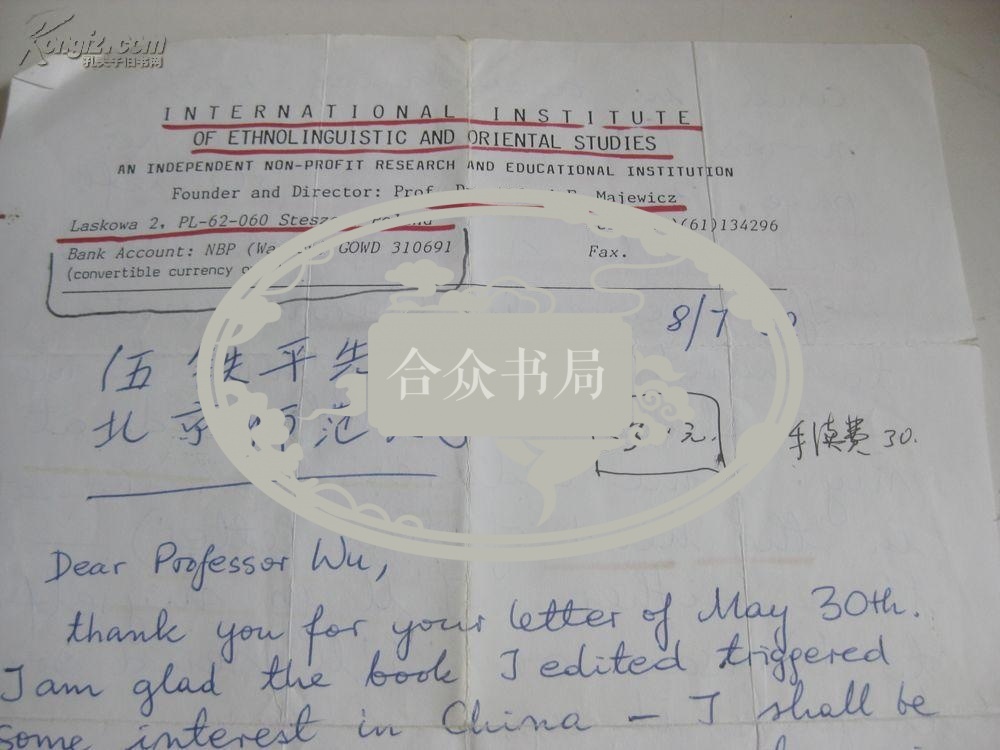 Kongfz.com
孔夫子旧书网
INTERNATIONAL INSTITUTE
OF ETHNOLINGUISTIC AND ORIENTAL STUDIES
AN INDEPENDENT NON-PROFIT RESEARCH AND EDUCATIONAL INSTITUTION
Founder and Director: Prof. Majewicz
Laskowa 2, PL-62-060
(61)134296
Bank Account: NBP GOWD 310691
Fax.
(convertible currency
8/7
伍铁平先
合众书局
北京师范
元.
手续费 30.
Dear Professor Wu,
thank you for your letter of May 30th.
I am glad the book I edited triggered
some interest in China – I shall be